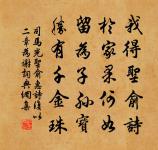 我得聖俞詩
於家果何如
留為子孫寶
勝有千金珠
司馬光聖俞惠詩復以
二章為謝詞興網集